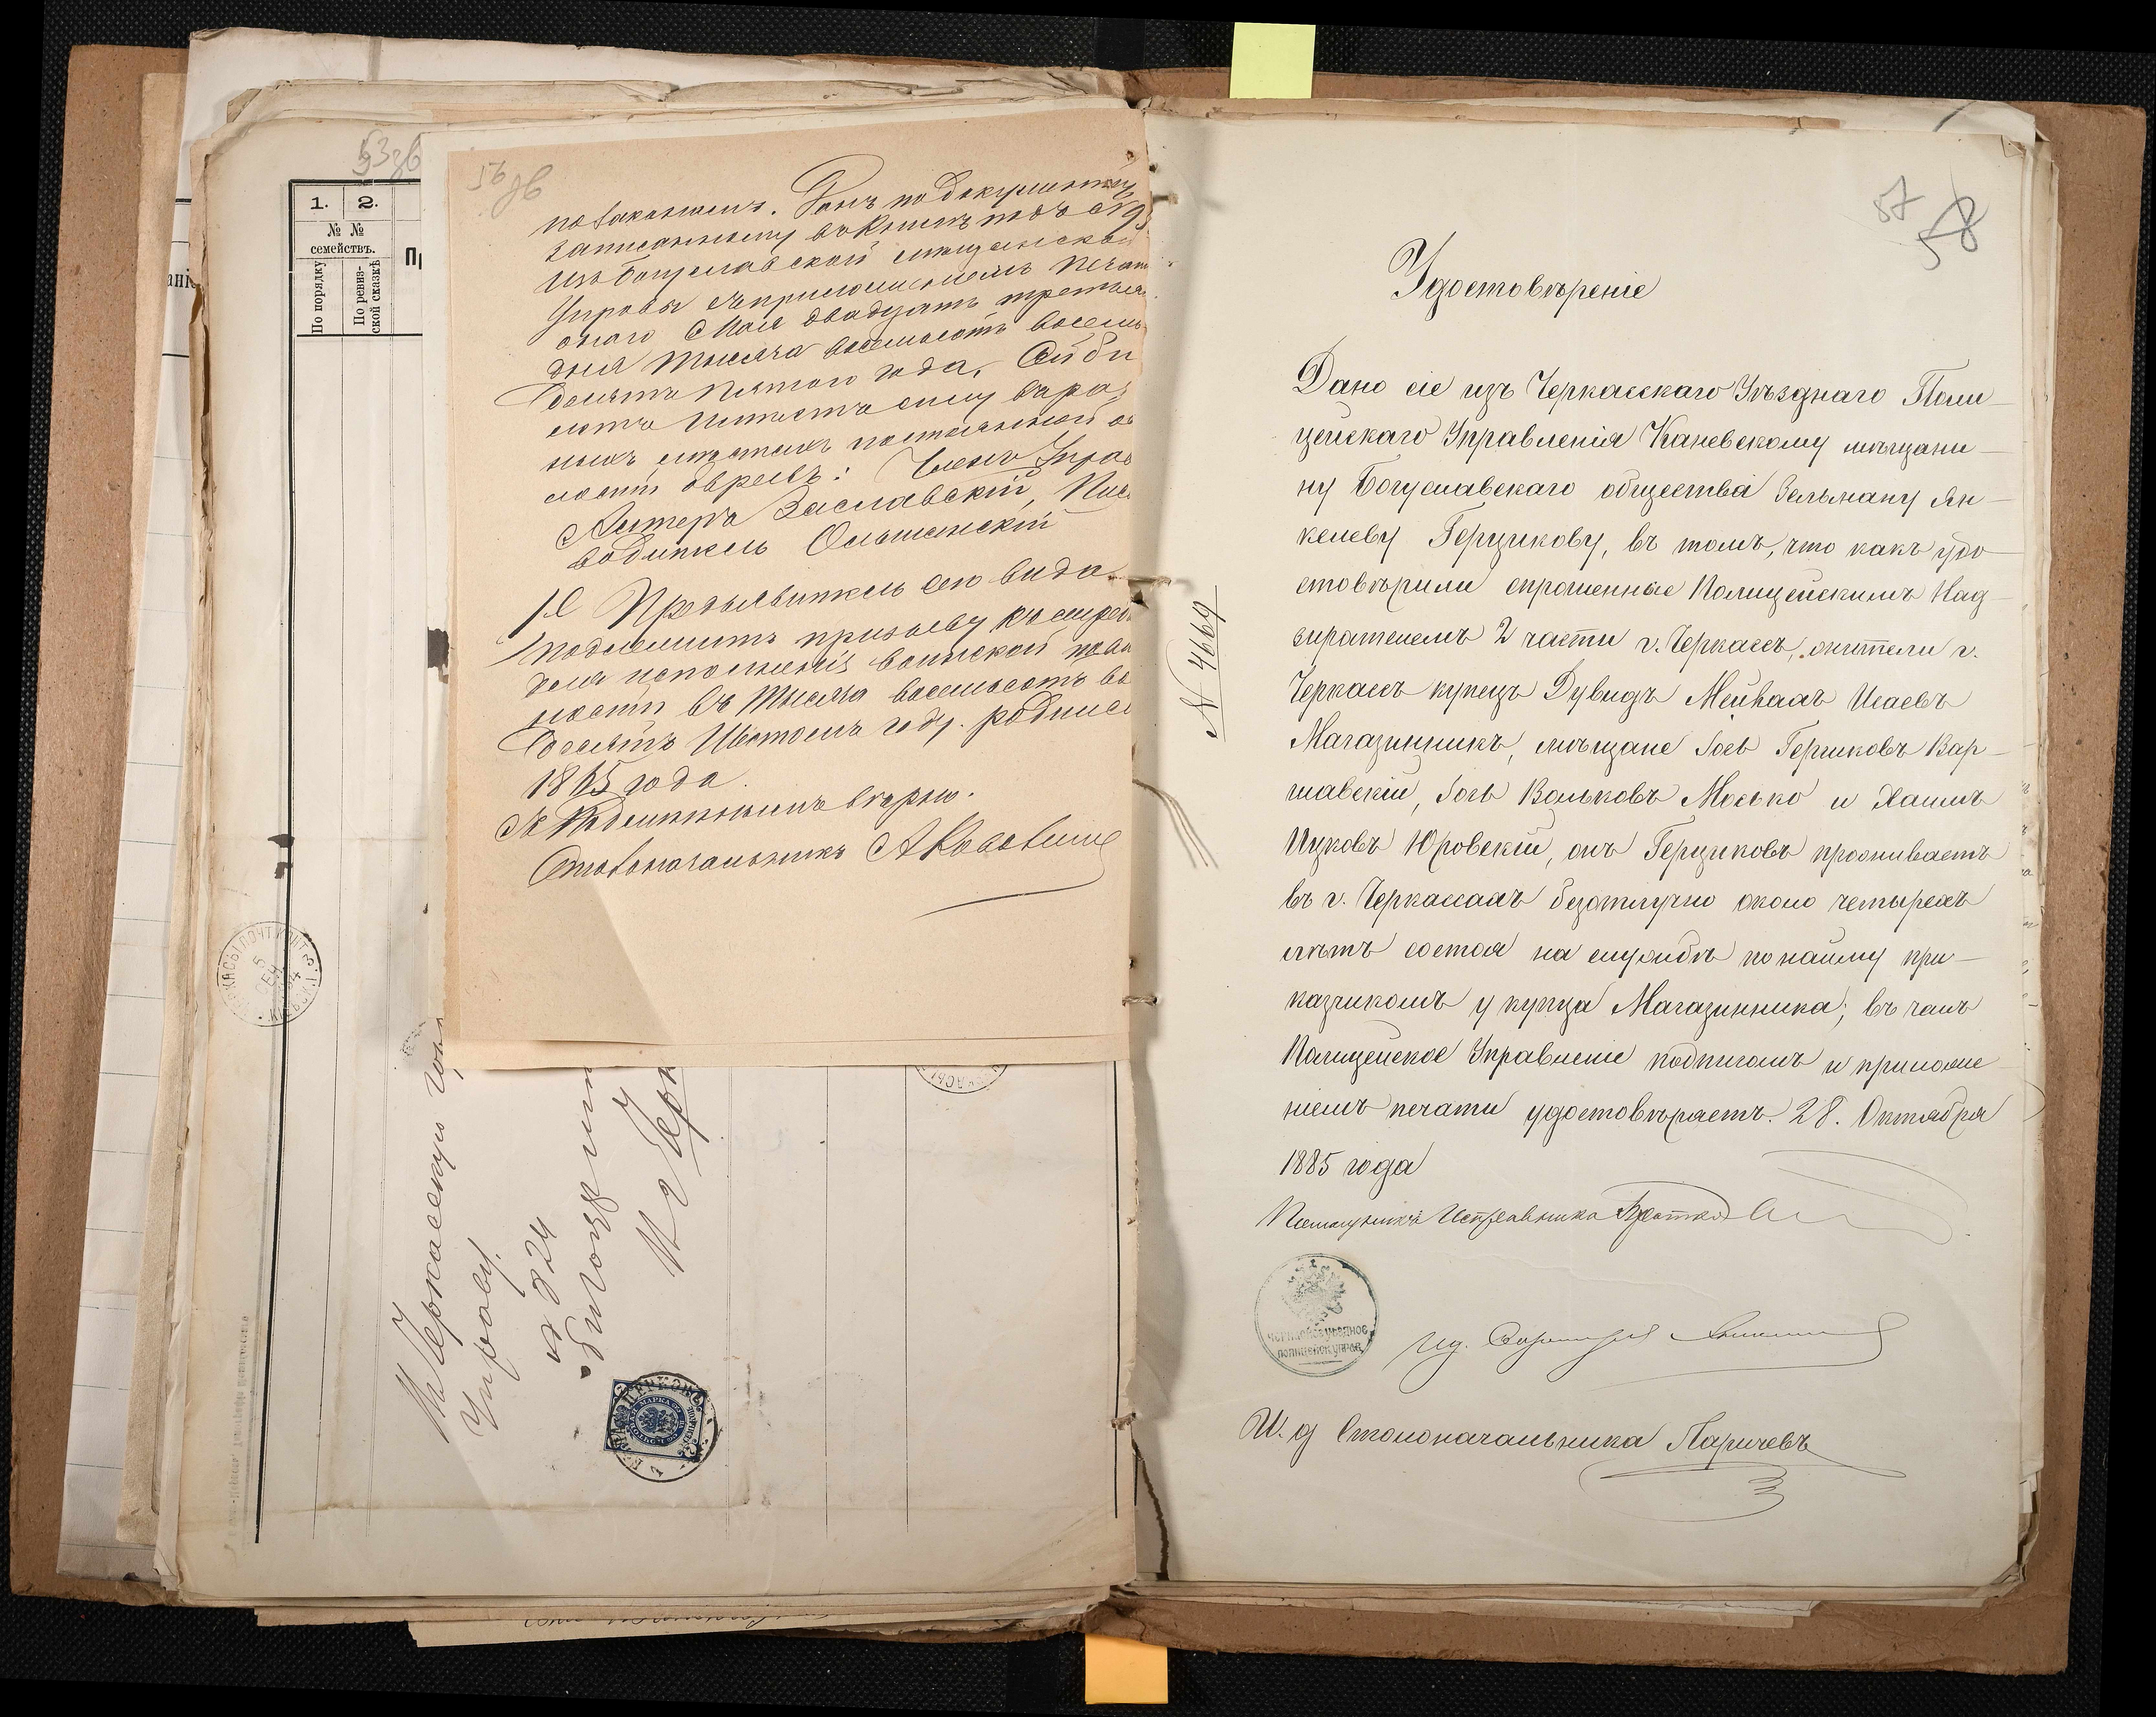 53 зв
1. 2.
№ №
семействъ.
По порядку
По ревиз-
ской сказкѣ
56 зв
по законамъ. Данъ по документу
записанному въ книгѣ подъ № 93
изъ Богуславской мѣщанской
Управы съ приложеніемъ печати
оного Мая двадцать третьяго
дня тысяча восемьсотъ восемь
десятъ пятого года. Сей би
летъ имѣетъ силу въ раз
ныхъ мѣстахъ постоянной ос
лости евреевъ: Членъ Управ
Заславскій,
водитель Ольшанскій
Предъявитель сего вида
подлежитъ призыву къ
для исполненія воинской пов
ности въ тысяча восемьсотъ во
десятъ шестомъ году. родился
1865 года
Съ подлиннымъ вѣрно.
Столоначальникъ
Въ Черкасскую
Управу.
№ 824
57
58
№ 4669
Удостовѣреніе
Дано сіе изъ Черкасскаго Уѣзднаго Поли-
цейскаго Управленія Каневскому мѣщани-
ну Богуславскаго общества Зельману Ян-
келеву Герцикову, въ томъ, что какъ удо-
стовѣрили спрошенные Полицейскимъ Над-
зирателемъ 2 части г. Черкассъ, жители г.
Черкассъ купецъ Дувидъ Исаевъ
Магазинникъ, мѣщане Іось Гершковъ Вар-
шавскій, Іось Вольковъ Мосько и Хаимъ
Ицковъ Юровскій, онъ Герциковъ проживаетъ
въ г. Черкассахъ безотлучно около четырехъ
лѣтъ состоя на службѣ по найму при-
казчикомъ у купца Магазинника; въ чемъ
Полицейское Управленіе подписомъ и приложе
ніемъ печати удостовѣряетъ. 28. Октября
1885 года
Помощникъ Исправника
ЧЕРКАСКОЕ УѢЗДНОЕ
ПОЛИЦЕЙСК. УПРАВ.
И. д. Секретаря
И. д Столоначальника Ларичевъ